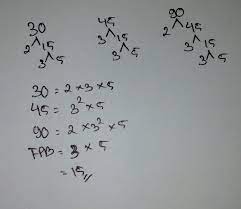 30 45 90
2 15 3 15 2 45
3 5 3 5 3 15
3 5
30 = 2 × 3 × 5
45 = 3² × 5
90 = 2 × 3² × 5
FPB = 3 × 5
= 15,,